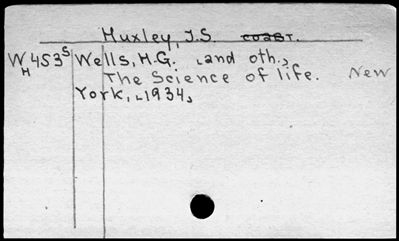 Huxley, J.S. coast.
WH453s Wells, H.G. and oth.,
The Science of life. New
York, 1934,